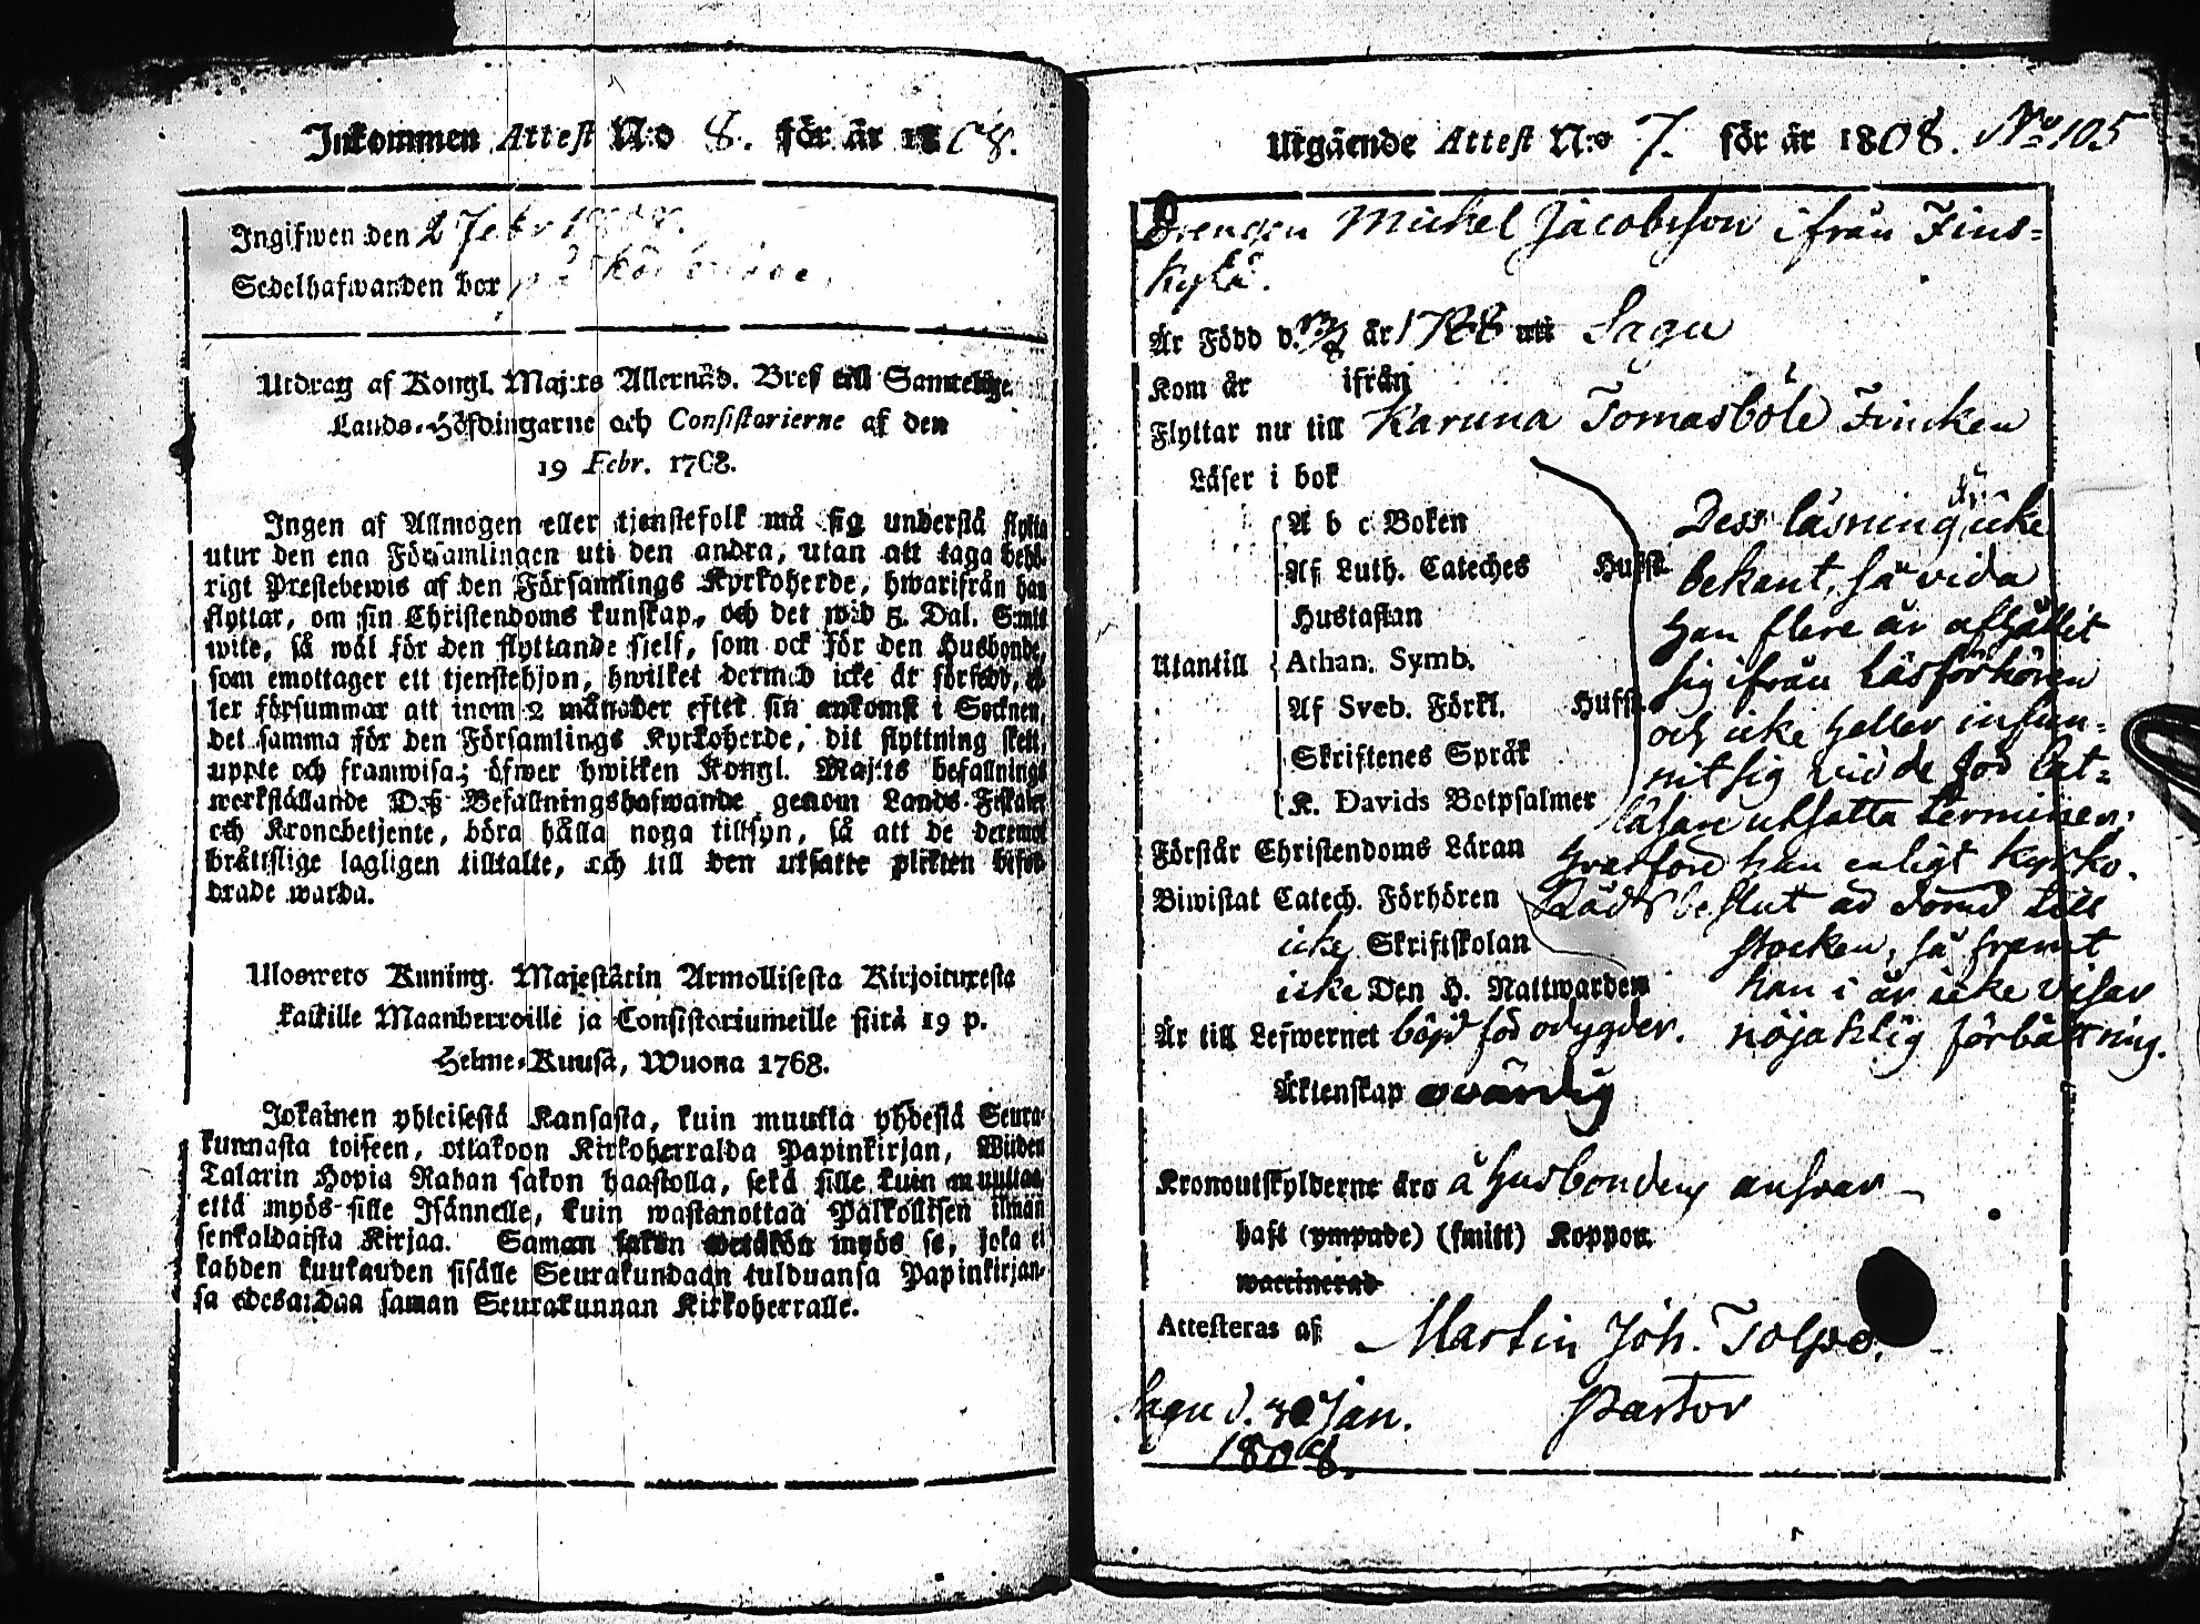 Inkommen Attest N:o 8. för år 1808.
Ingifwen den 2 Febr 1808.
Sedelhafwanden bor på
Utdrag af Kongl. Maj:ts Allernåd. Bref till Samtelige
Lands-Höfdingarne och Consistorierne af den
19 Febr. 1768.
Ingen af Allmogen eller tjenstefolk må sig understå flytta
utur den ena Församlingen uti den andra, utan att taga behö-
rigt Prestebewis af den Församlings Kyrkoherde, hwarifrån han
flyttar, om sin Christendoms kunskap, och det wid 5. Dal. S:mts
wite, så wäl för den flyttande sjelf, som ock för den Husbonde,
som emottager ett tjenstehjon, hwilket dermed icke är försedd, el-
ler försummar att inom 2 månader efter sin ankomst i Socknen,
det samma för den Församlings Kyrkoherde, dit flyttning skett,
uppte och framwisa; öfwer hwilken Kongl. Maj:ts befallnings
werkställande Deß Befallningshafwande genom Lands-Fiskaler
och Kronobetjente, böra hålla noga tillsyn, så att de deremot
bråttslige lagligen tilltalte, och till den utsatte plikten bifod-
drade warda.
Ulosweto Kuning. Majestätin Armollisesta Kirjoituxesta
kaikille Maanherroille ja Consistoriumeille siitä 19 p.
Helme-Kuusa, Wuona 1768.
Jokainen yhteisestä Kansasta, kuin muutta yhdestä Seura-
kunnasta toiseen, ottakoon Kirkoherralda Papinkirjan, Wiiden
Talarin Hopia Rahan sakon haastolla, sekä sille kuin muuttaa,
että myös sille Isännelle, kuin wastanottaa Palkollisen ilman
senkaldaista Kirjaa. Saman sakon wetäkön myös se, joka ei
kahden kuukauden sisälle Seurakundaan tulduansa Papinkirjan-
sa edesandaa saman Seurakunnan Kirkoherralle.
Utgående Attest N:o 7. för år 1808. No 105
Drengen Michel Jacobsson ifrån Fins-
kylä.
Är Född d. år 1788 uti Sagu
Kom år ifrån
Flyttar nu till Karuna Tomasböle Fincken
Läser i bok
A b c Boken
Af Luth. Cateches Hufst.
Hustaflan
Utantill Athan. Symb.
Af Sveb. Förkl. Hufst.
Skriftenes Språk
K. Davids Botpsalmer
Dess läsning är icke
bekant, så vida
han flere år afhållit
sig ifrån Läsförhören
och icke heller infun-
nit sig vid de för lat-
läsare utsatta terminer;
hvarföre han enligt Kyrko-
Råds beslut är dömd till
stocken, så framt
han i år icke visar
nöjaktig förbättring.
Förstår Christendoms Läran
Biwistat Catech. Förhören
icke Skriftskolan
icke Den H. Nattwarden
Är till Lefwernet böjd för odygder.
Äktenskap ovärdig
Kronoutskylderne äro å Husbondens ansvar
haft (ympade) (smitt) Koppor.
waccinerad
Attesteras af Martin Joh. Tolpo.
Pastor
Sagu d. 30 Jan.
1808.